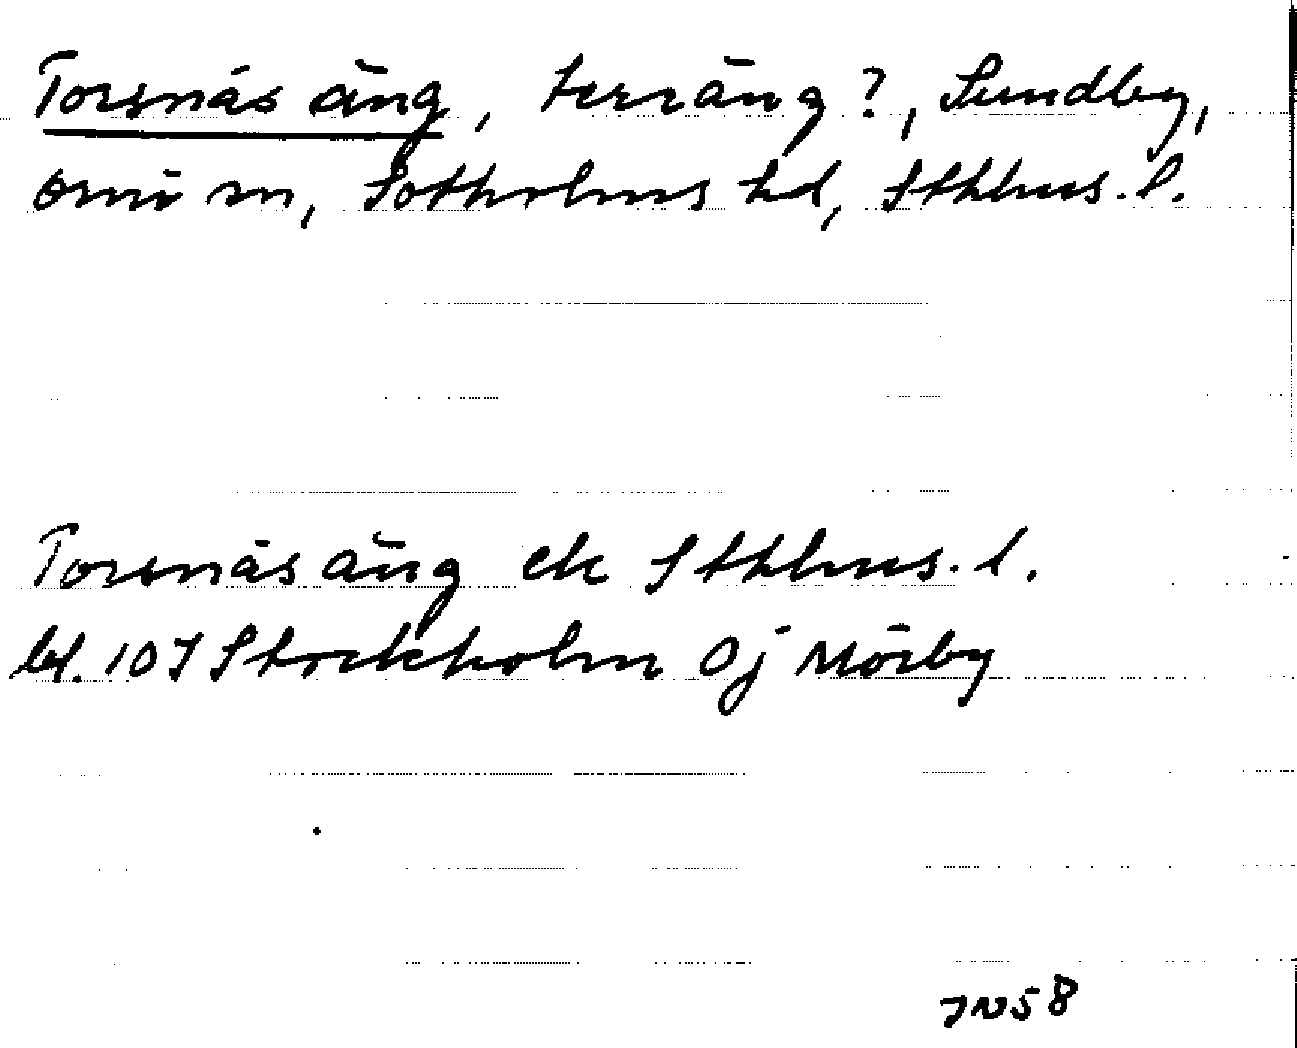 Torsnäs äng, terräng?, Sundby,
Ornö sn, Sotholms hd, Sthlms. l.
Torsnäs äng ek Sthlms. l.
bl. 107 Stockholm Oj Mörby
JN58